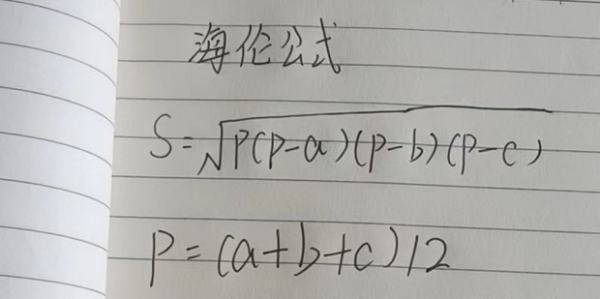 海伦公式
S=√p(p-a)(p-b)(p-c)
p=(a+b+c)/2